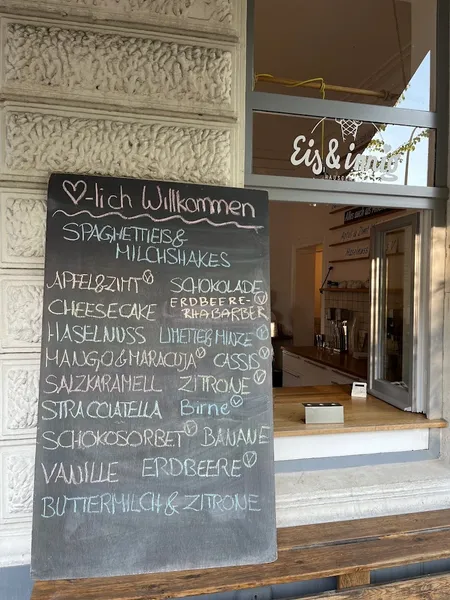 Eis & innig
♡-lich Willkommen
SPAGHETTIEIS &
MILCHSHAKES
APFEL & ZIMT Ⓥ SCHOKOLADE
CHEESECAKE ERDBEERE-RHABARBER Ⓥ
HASELNUSS LIMETTE & MINZE Ⓥ
MANGO & MARACUJA Ⓥ CASSIS Ⓥ
SALZKARAMELL ZITRONE Ⓥ
STRACCIATELLA Birne Ⓥ
SCHOKOSORBET Ⓥ BANANE
VANILLE ERDBEERE Ⓥ
BUTTERMILCH & ZITRONE